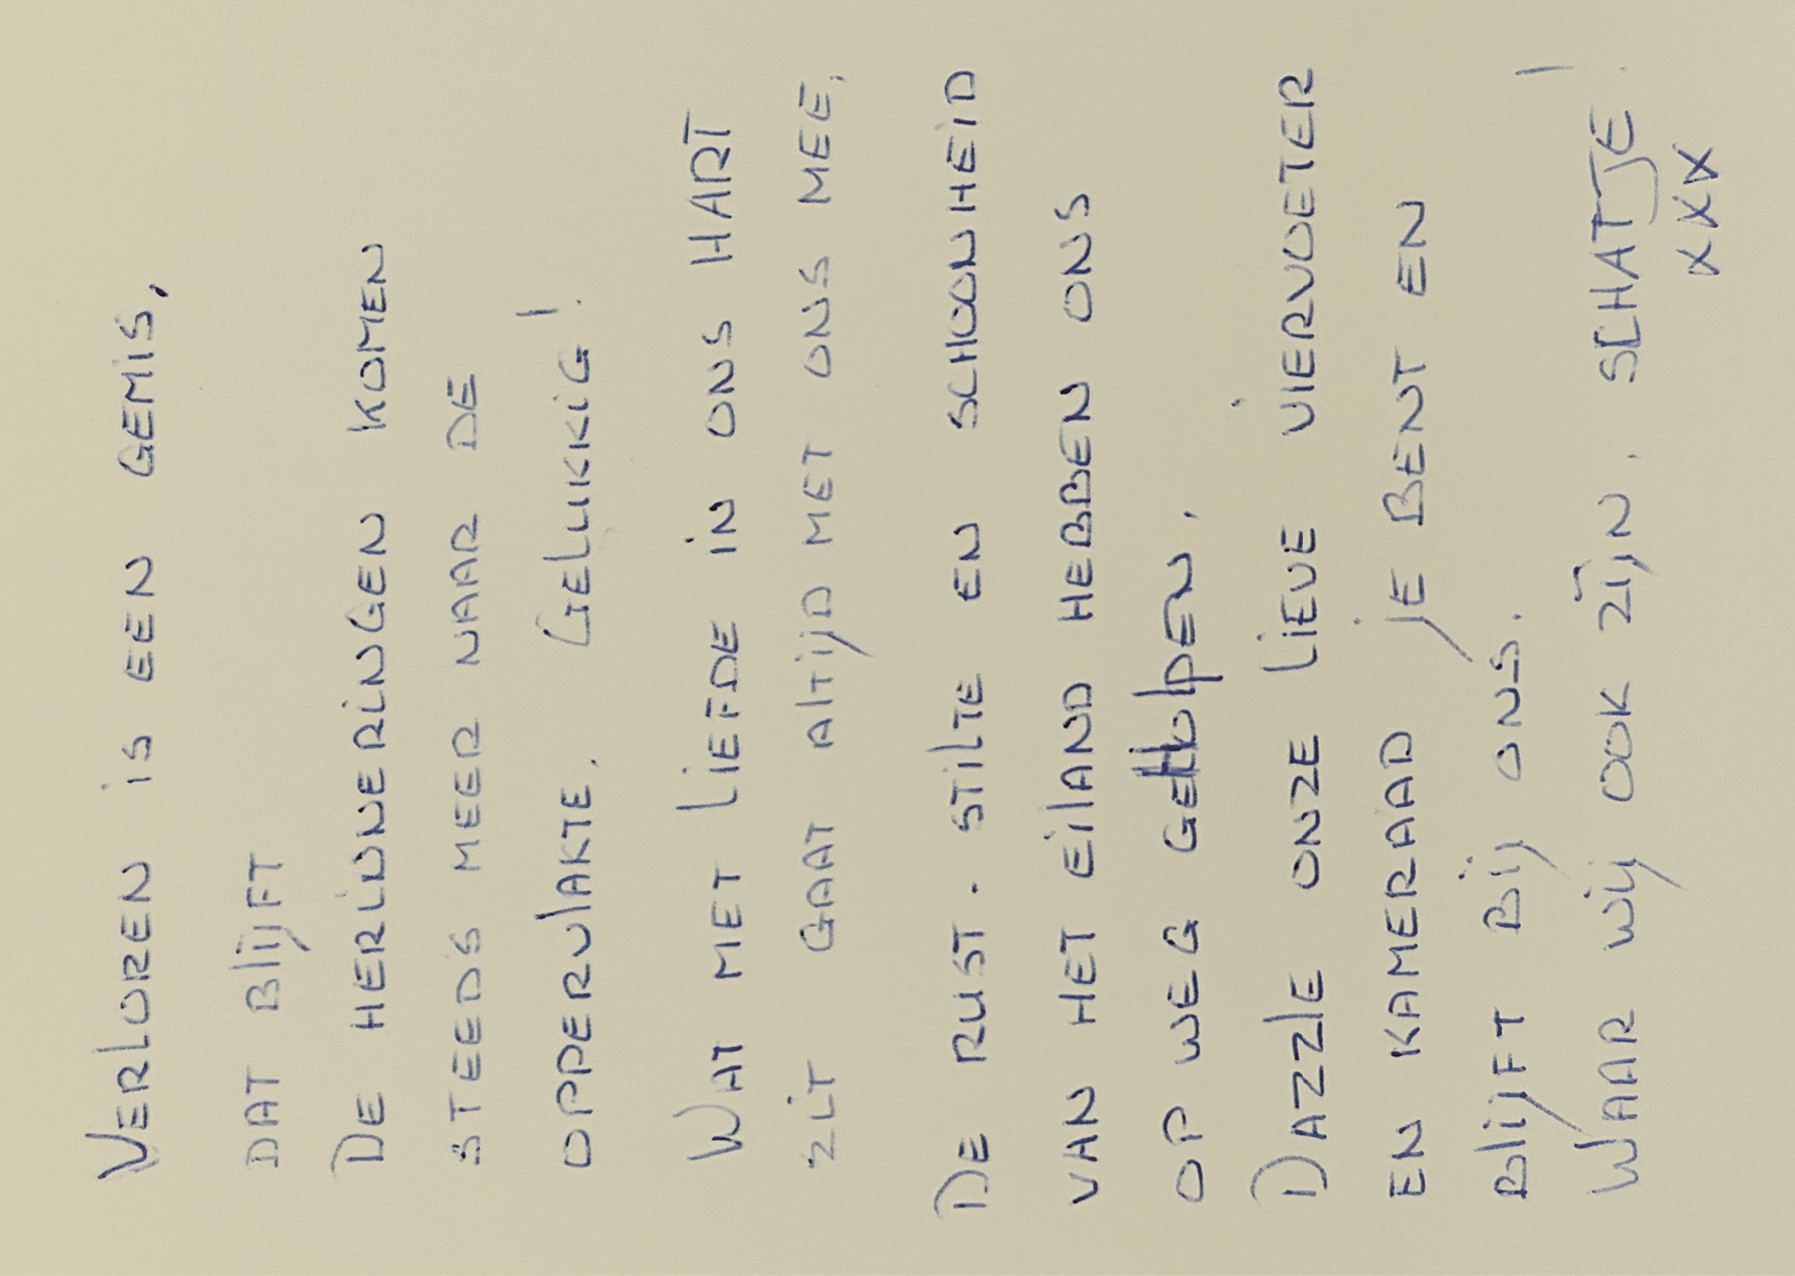 VERLOREN iS EEN GEMiS,
DAT BlijFT
DE HERiNNERiNGEN KOMEN
STEEDS MEER NAAR DE
OPPERVlAKTE. GELUKKiG!
WAT MET LIEFDE iN ONS HART
ZiT GAAT AlTijD MET ONS MEE,
DE RUST. STilTE EN SCHOONHEiD
VAN HET EilAND HEBBEN ONS
OP WEG GEHOlpEN.
DAZZlE ONZE LiEVE ViERVOETER
EN KAMERAAD jE BENT EN
BlijFT Bij ONS.
WAAR Wij OOK ZijN. SCHATJE!
XXX